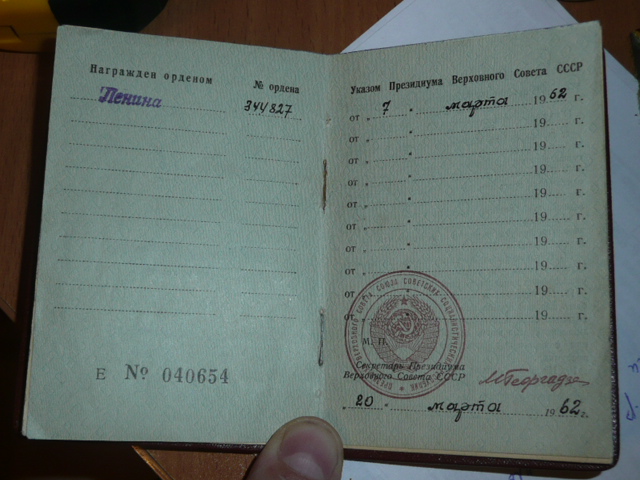 Награжден орденом № ордена
Ленина 344827
Е № 040654
Указом Президиума Верховного Совета СССР
от „ 7 " марта 1962 г.
от „ " 19 г.
от „ " 19 г.
от „ " 19 г.
от „ " 19 г.
от „ " 19 г.
от „ " 19 г.
от „ " 19 г.
от „ " 19 г.
от „ " 19 г.
М. П.
Секретарь Президиума
Верховного Совета СССР
МГеоргадзе
„20" марта 1962 г.